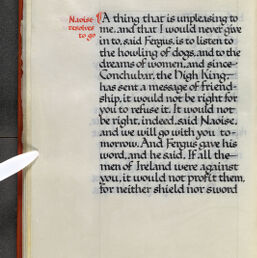 Naoise
resolves
to go
A thing that is unpleasing to
me, and that I would never give
in to, said Fergus, is to listen to
the howling of dogs, and to the
dreams of women, and since
Conchubar, the High King,
has sent a message of friend-
ship, it would not be right for
you to refuse it. It would not
be right, indeed, said Naoise,
and we will go with you to-
morrow. And Fergus gave his
word, and he said, If all the
men of Ireland were against
you, it would not profit them,
for neither shield nor sword